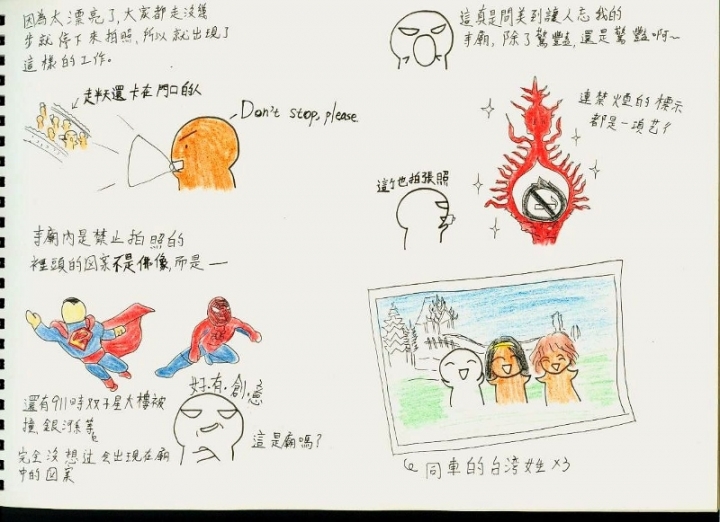 因為太漂亮了，大家都走沒幾
步就停下來拍照，所以就出現了
這樣的工作。
走半天還卡在門口的人
Don't stop, please.
寺廟內是禁止拍照的
裡頭的図案不是佛像，而是一
好有創意
還有911時双子星大樓被
撞、銀河系等
這是廟嗎？
完全沒想过会出現在廟
中的図案
這真是間美到讓人忘我的
寺廟，除了驚豔，還是驚豔啊~
連禁煙的標示
都是一項艺術
這个也拍張照
同車的台湾姓 x3